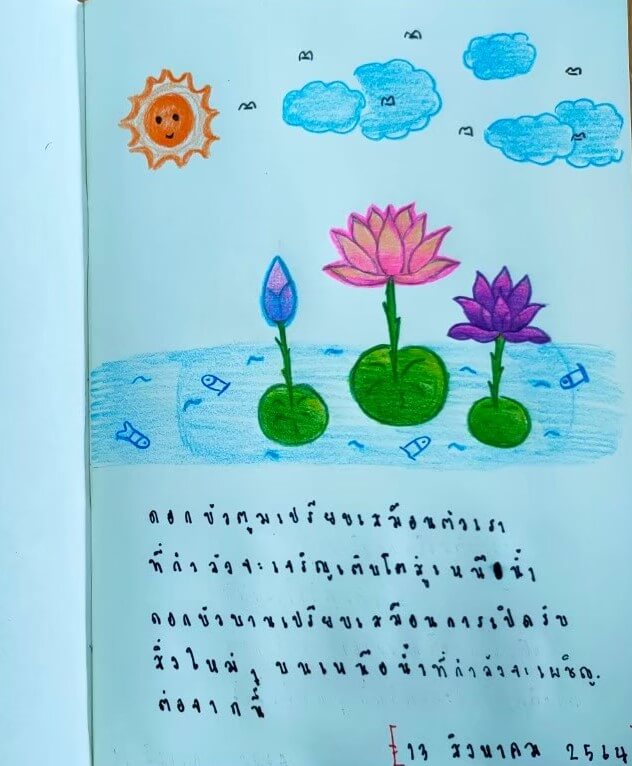 ดอกบัวตูมเปรียบเสมือนตัวเรา
ที่กำลังจะเจริญเติบโตสู่เหนือน้ำ
ดอกบัวบานเปรียบเสมือนการเปิดรับ
สิ่งใหม่ๆ บนเหนือน้ำที่กำลังจะเผชิญ
ต่อจากนี้
13 สิงหาคม 2564